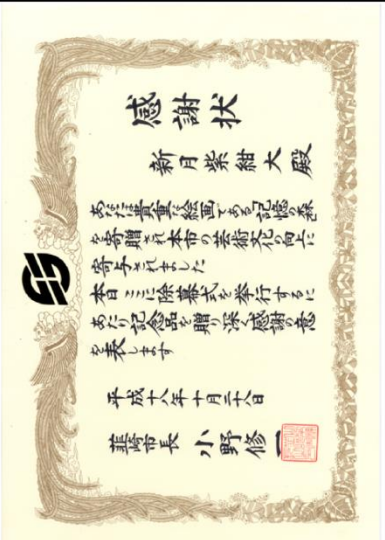 感謝状
新月紫紺大殿
あなたは貴重な絵画である「記憶の森」
を寄贈され本市の芸術文化の向上に
寄与されました
本日ここに除幕式を挙行するに
あたり記念品を贈り深く感謝の意
を表します
平成十八年十月二十八日
韮崎市長 小野修一